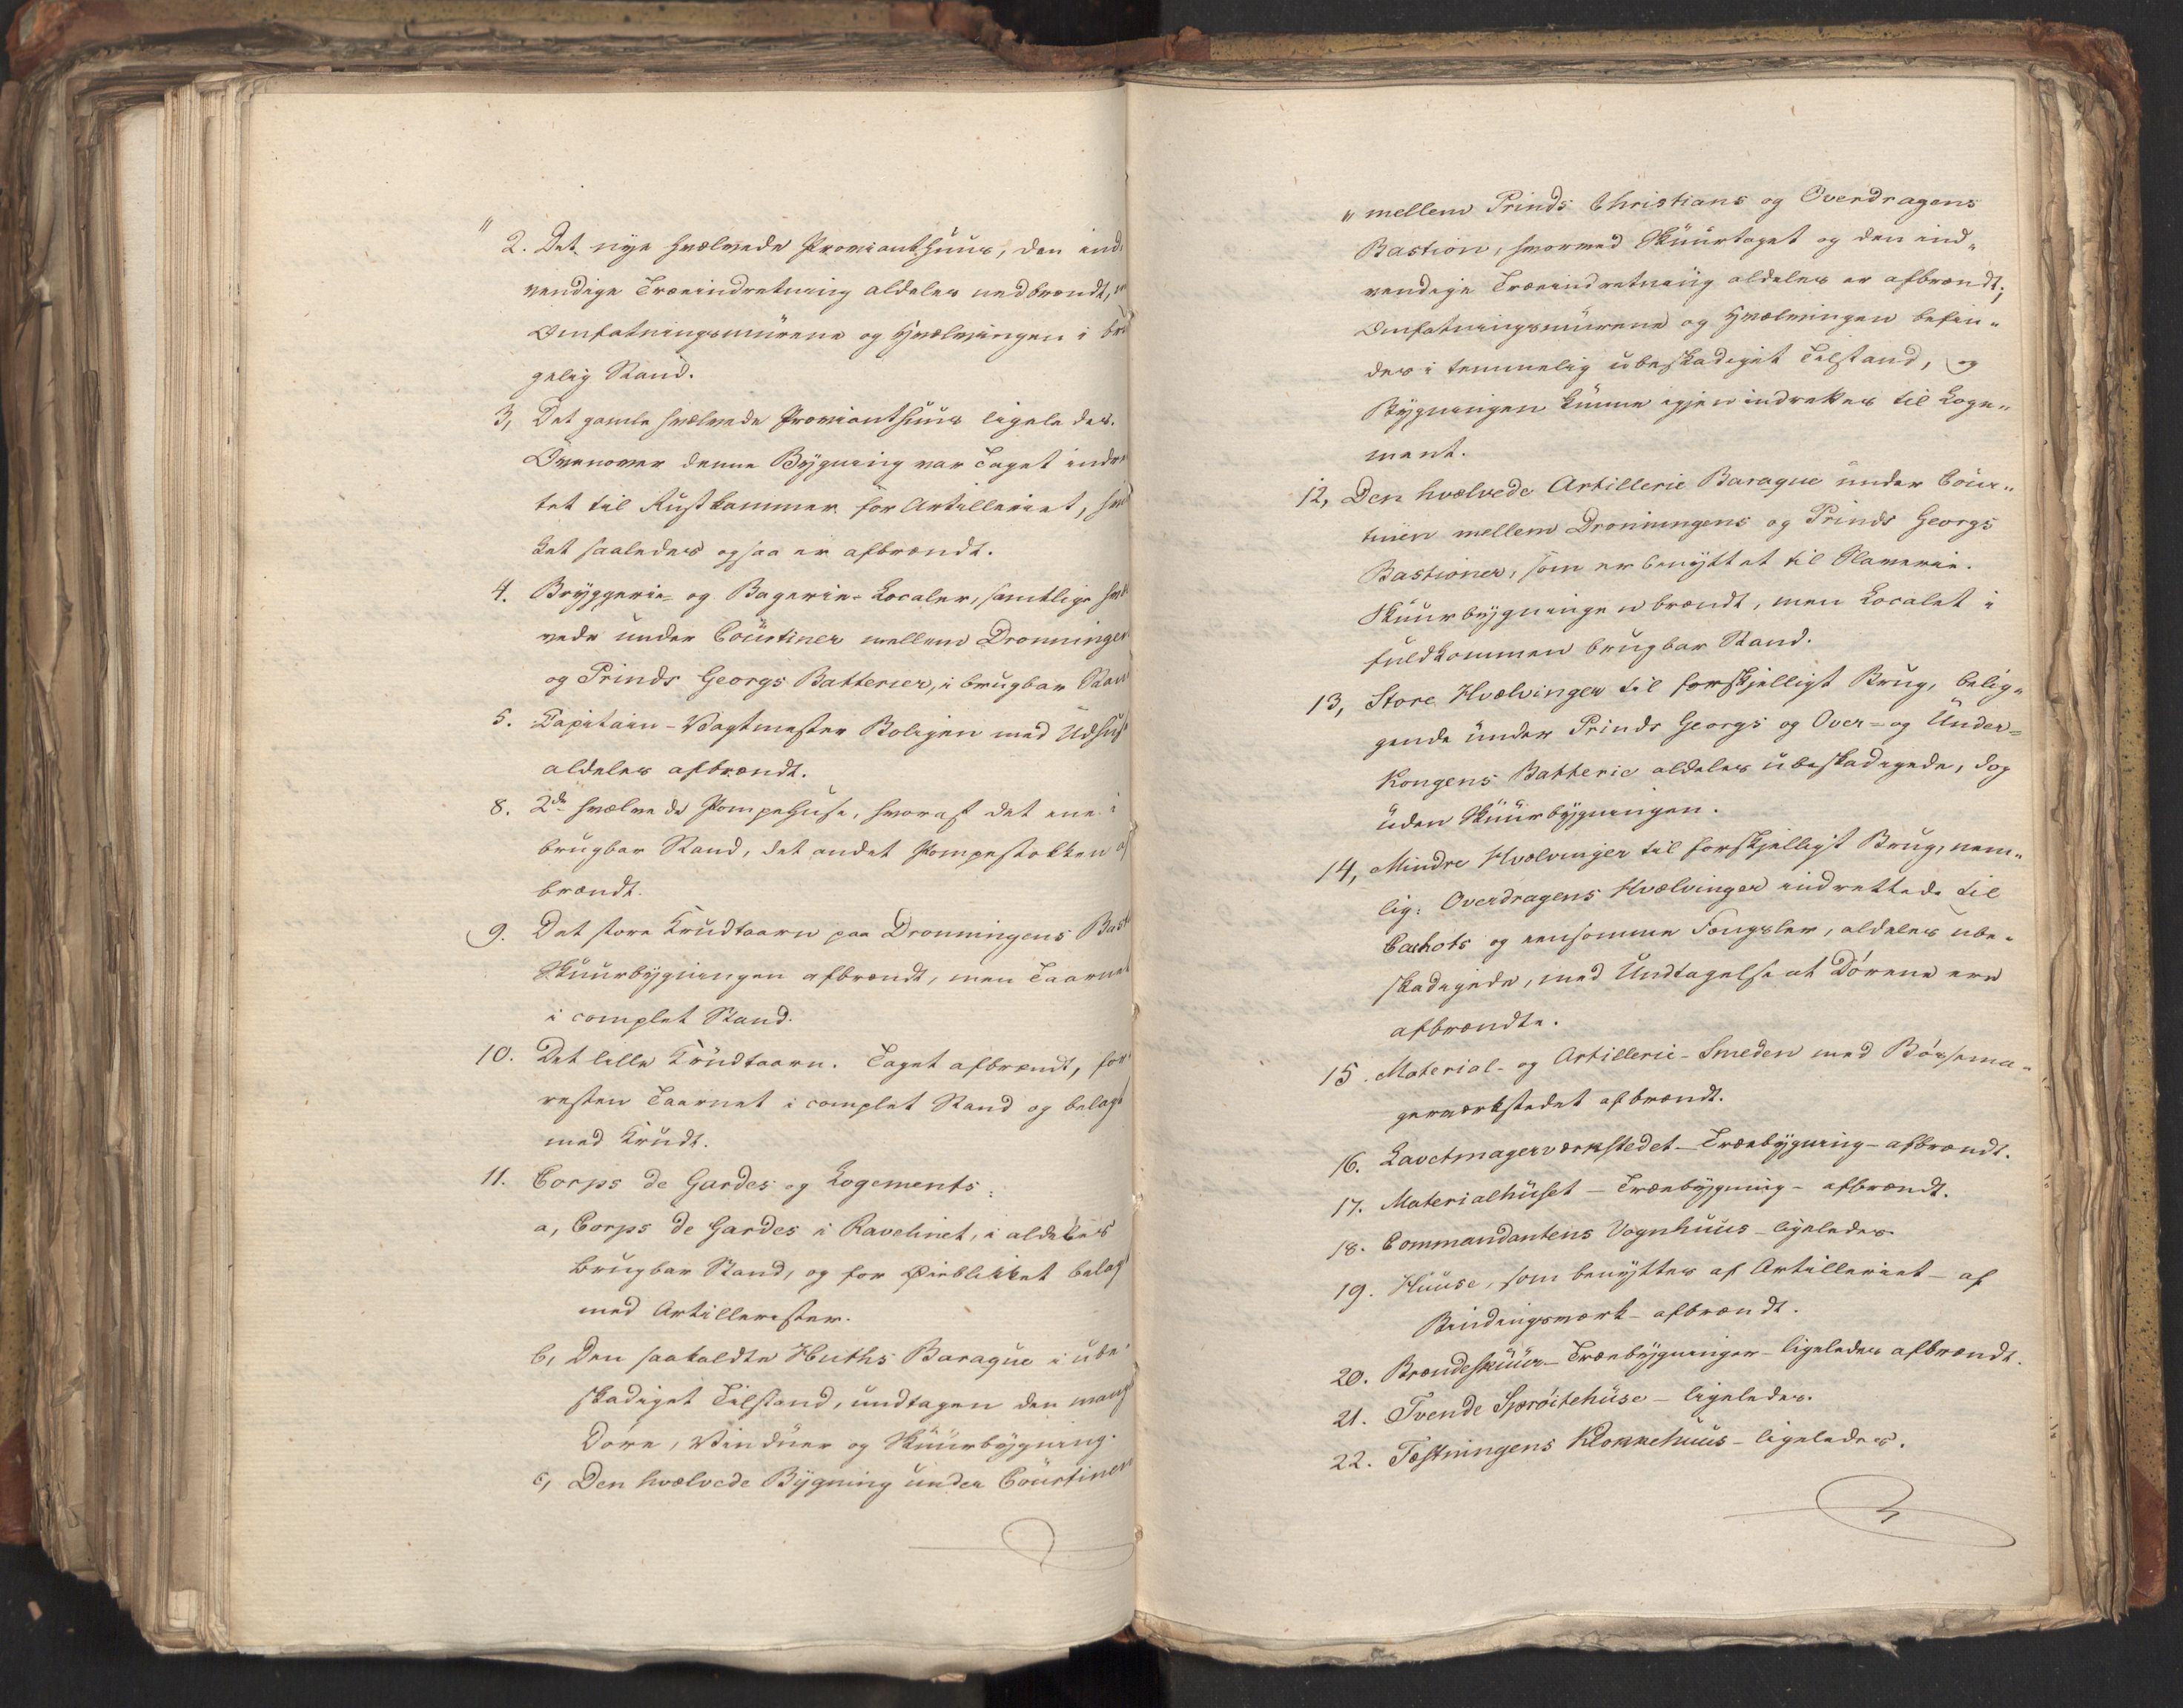 " 2. Det nye hvælvede Provianthuus, den ind-
vendige Træeindretning aldeles nedbrændt,
Omfatningsmürene og Hvælvingen i brü
gelig Stand.
3, Det gamle hvælvede Provianthuus ligeledes.
Ovenover denne Bÿgning var Taget indret
tet til Rustkammer for Artilleriet, hvil
ket saaledes ogsaa er afbrændt.
4. Brÿggerie- og Bagerie-Localer, samtlige hvæl
vede ünder Coürtiner mellem Dronningens
og Prinds Georgs Batterier, i brügbar Stand
5. Capitain-Vagtmester Boligen med Üdhüs
aldeles afbrændt.
8. 2de hvælvede Pompehuse, hvoraf det ene i
brügbar Stand, det andet Pompestokken af
brændt.
9. Det store Krüdtaarn paa Dronningens Bast
Skuurbÿgningen afbrændt, men Taarnet
i complet Stand.
10. Det lille Krüdtaarn. Taget afbrændt, for
resten Taarnet i complet Stand og belagt
med Krüdt.
11. Corps de Gardes og Logements:
a, Corps de Gardes i Ravelinet, i aldeles
brügbar Stand, og for Øieblikket belagt
med Artillerister.
b, Den saakaldte Huths Baraque i übe
skadiget Tilstand, undtagen den mangler
Döre, Vindüer og Skuurbÿgning.
c, Den hvælvede Bÿgning ünder Coürtinen
" mellem Prinds Christians og Overdragens
Bastion, hvorved Skuurtaget og den ind-
vendige Træeindretning aldeles er afbrændt;
Omfatningsmürene og Hvælvingen befin-
des i temmelig übeskadiget Tilstand, og
Bÿgningen künne igjen indrettes til Loge-
ment.
12, Den hvælvede Artillerie Baraque ünder Coür-
tinen mellem Dronningens og Prinds Georgs
Bastioner, som er benÿttet til Slaverie.
Skuurbÿgningen brændt, men Localet i
fuldkommen brügbar Stand.
13, Store Hvælvinger til forskjelligt Brüg, belig-
gende ünder Prinds Georgs og Over- og Ünder-
Kongens Batterie aldeles übeskadigede, dog
üden Skuurbÿgningen.
14, Mindre Hvælvinger til forskjelligt Brüg, nem-
lig: Overdragens Hvælvinger indrettede til
Cachots og eensomme Fængsler, aldeles übe-
skadigede, med Ündtagelse at Dörene ere
afbrændte.
15. Material- og Artillerie-Smeden med Bössema-
gerværkstedet afbrændt.
16. Lavetmagerværkstedet - Træebÿgning - afbrændt.
17. Materialhüset - Træebÿgning - afbrændt.
18. Commandantens Vognhuus - ligeledes.
19. Huuse, som benÿttes af Artilleriet - af
Bindingsværk - afbrændt.
20. Brændeskuur - Træebÿgninger - ligeledes afbrændt.
21. Tvende Spröitehüse - ligeledes.
22. Fæstningens Klokkehuus - ligeledes.